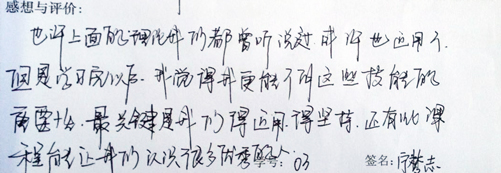 感想与评价:
也许上面的理论我们都曾听说过,或许也运用了.
但是学习完以后,我觉得我更能了解这些技能的
重要性.最关键是我们得运用.得坚持.还有此课
程能让我们认识很多优秀的人.
学号: 03 签名: